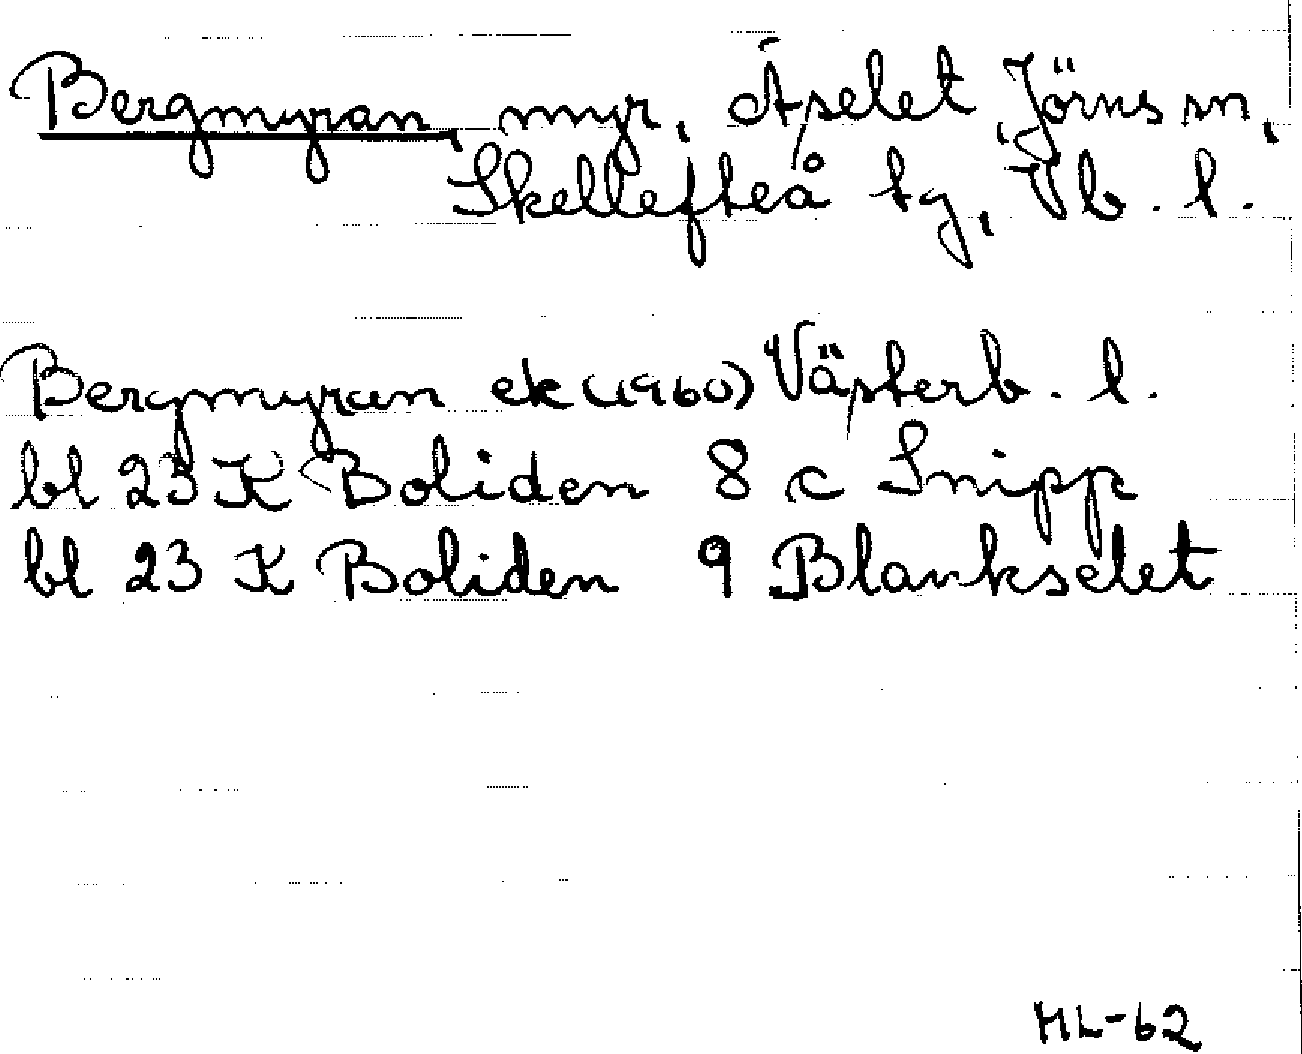 Bergmyran, myr, Åselet, Jörns sn,
Skellefteå tg, Vb. l.
Bergmyran ek (1960) Västerb. l.
bl 23 K Boliden 8 c Snipp
bl 23 K Boliden 9 Blankselet
HL-62